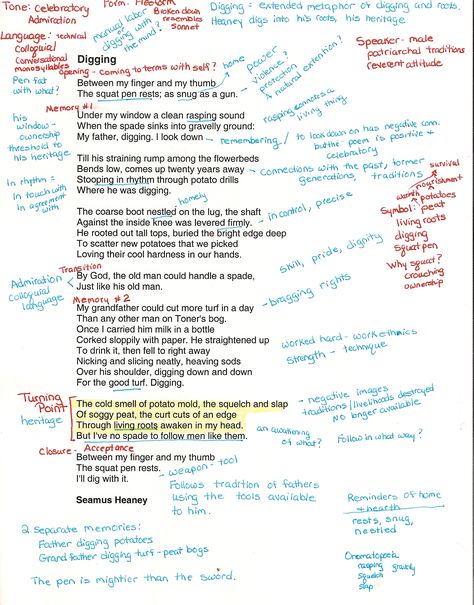 Tone: Celebratory
Admiration
Form: Freeform
Broken down
resembles
sonnet
Digging = extended metaphor of digging and roots.
Heaney digs into his roots, his heritage
Language: technical
Colloquial
Conversational
monosyllables
manual labor
or
digging with
the mind?
Speaker- male
patriarchal traditions
reverent attitude
Digging
opening - coming to terms with self?
home
power
violence?
protection?
a natural extension?
Pen fat
with what?
Between my finger and my thumb
The squat pen rests; as snug as a gun.
Memory #1
rasping comes a
living thing
Under my window a clean rasping sound
When the spade sinks into gravelly ground:
My father, digging. I look down
remembering/
to look down on has negative conn.
but the poem is positive +
celebratory
his
window -
ownership
threshold to
his heritage
Till his straining rump among the flowerbeds
Bends low, comes up twenty years away
Stooping in rhythm through potato drills
Where he was digging.
Connections with the past, former
generations, traditions
survival
nourishment
warmth
potatoes
Symbol: peat
living roots
digging
squat pen
Why squat?
crouching
ownership
In rhythm =
in touch with
in agreement
with
homely
The coarse boot nestled on the lug, the shaft
Against the inside knee was levered firmly.
He rooted out tall tops, buried the bright edge deep
To scatter new potatoes that we picked
Loving their cool hardness in our hands.
in control, precise
skill, pride, dignity
Transition
Admiration
Colloquial
language
By God, the old man could handle a spade,
Just like his old man.
bragging rights
Memory #2
My grandfather could cut more turf in a day
Than any other man on Toner's bog.
Once I carried him milk in a bottle
Corked sloppily with paper. He straightened up
To drink it, then fell to right away
Nicking and slicing neatly, heaving sods
Over his shoulder, digging down and down
For the good turf. Digging.
worked hard - work ethnics
strength - technique
Turning
Point
heritage
The cold smell of potato mold, the squelch and slap
Of soggy peat, the curt cuts of an edge
Through living roots awaken in my head.
But I've no spade to follow men like them.
negative images
traditions/livelihoods destroyed
no longer available
an awakening
of what?
Follow in what way?
Closure - Acceptance
Between my finger and my thumb
The squat pen rests.
I'll dig with it.
weapon - tool
Follows tradition of fathers
using the tools available
to him.
Seamus Heaney
Reminders of home
+ hearth
rests, snug,
nestled
2 separate memories:
Father digging potatoes
Grand father digging turf - peat bogs
The pen is mightier than the sword.
Onomatopoeia
rasping gravelly
squelch
slap